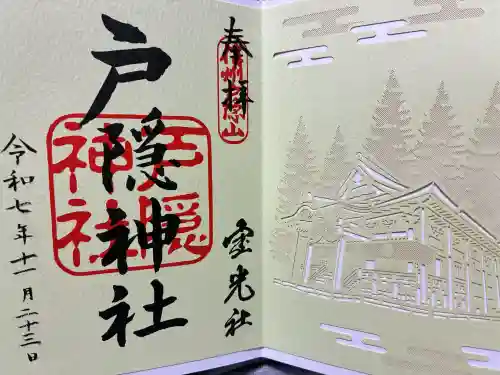 奉拝
信州戸隠山
宝光社
戸隠神社
戸隠神社
令和七年十一月二十三日